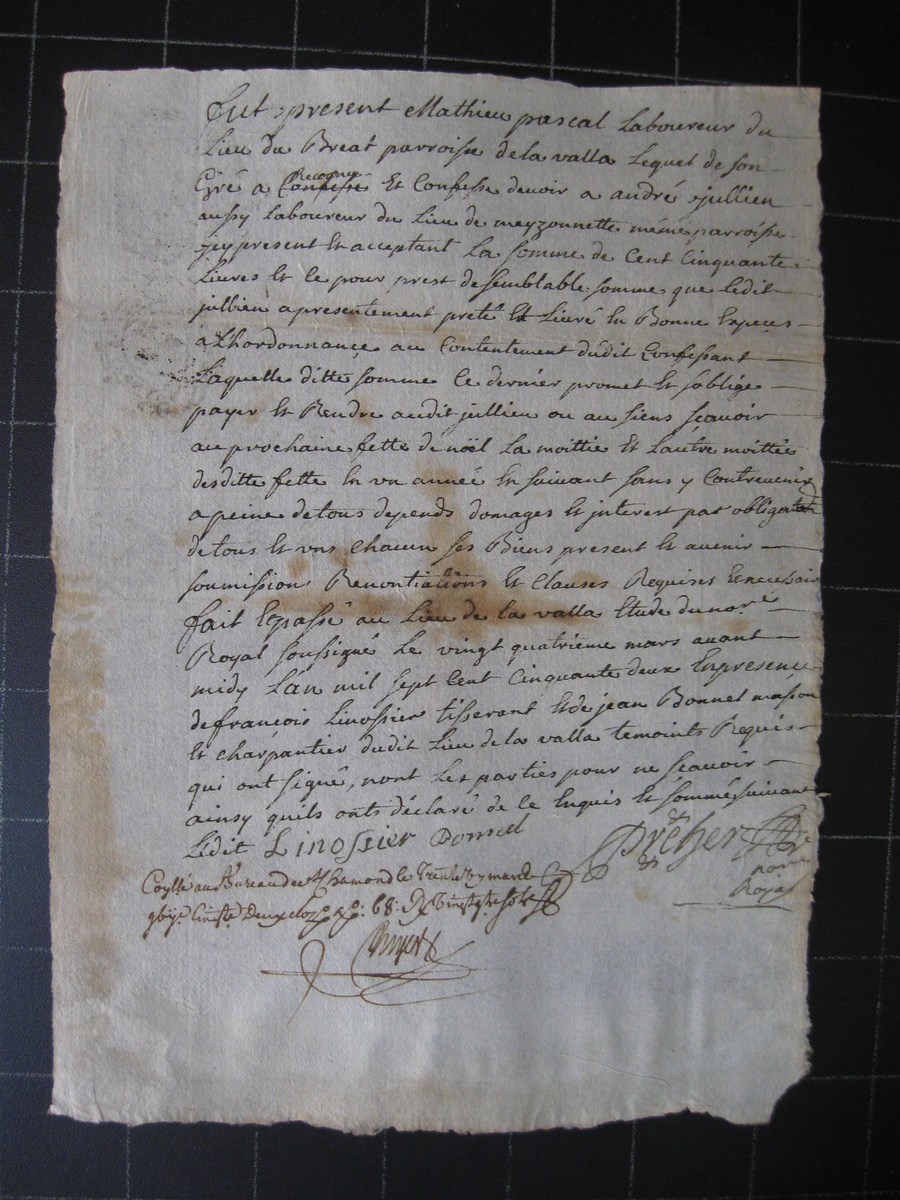 fut present Mathieu pascal Laboureur du
Lieu du Breat parroisse de la valla Lequel de son
Gré a Recogneu Et Confesse devoir a andré jullien
aussy Laboureur du Lieu de meyzonnette même parroisse
icy present Et acceptant La somme de Cent Cinquante
Livres Et ce pour prest de semblable somme que Ledit
jullien a presentement preté Et Livré En Bonne Especes
a Lhordonnance au Contentement dudit Confessant
Laquelle ditte somme Ce dernier promet Et soblige
payer Et Rendre audit jullien ou au siens scavoir
au prochaine fette de nöel La moittié Et Lautre moittée
desditte fette En un année En suivant sans y Contrevenir
a peine de tous depends domages Et interest par obligation
de tous Et uns Chacun ses Biens present Et avenir
soumission Renontiations Et Clauses Requises
fait Et passé au Lieu de La valla Etude du nore
Royal soussigné Le vingt quatrième mars avant
midy L'an mil sept Cent Cinquante deux En presence
de françois Linossier tisserant Et de jean Bonnet masson
Et charpantier dudit Lieu de la valla temoints Requis
qui ont signé, nont Les parties pour ne scavoir
ainsy quils onts déclaré de Ce Enquis Et sommé suivant
Lédit Linossier
no Royal
au Bureau de St Chamond le Trente un mars